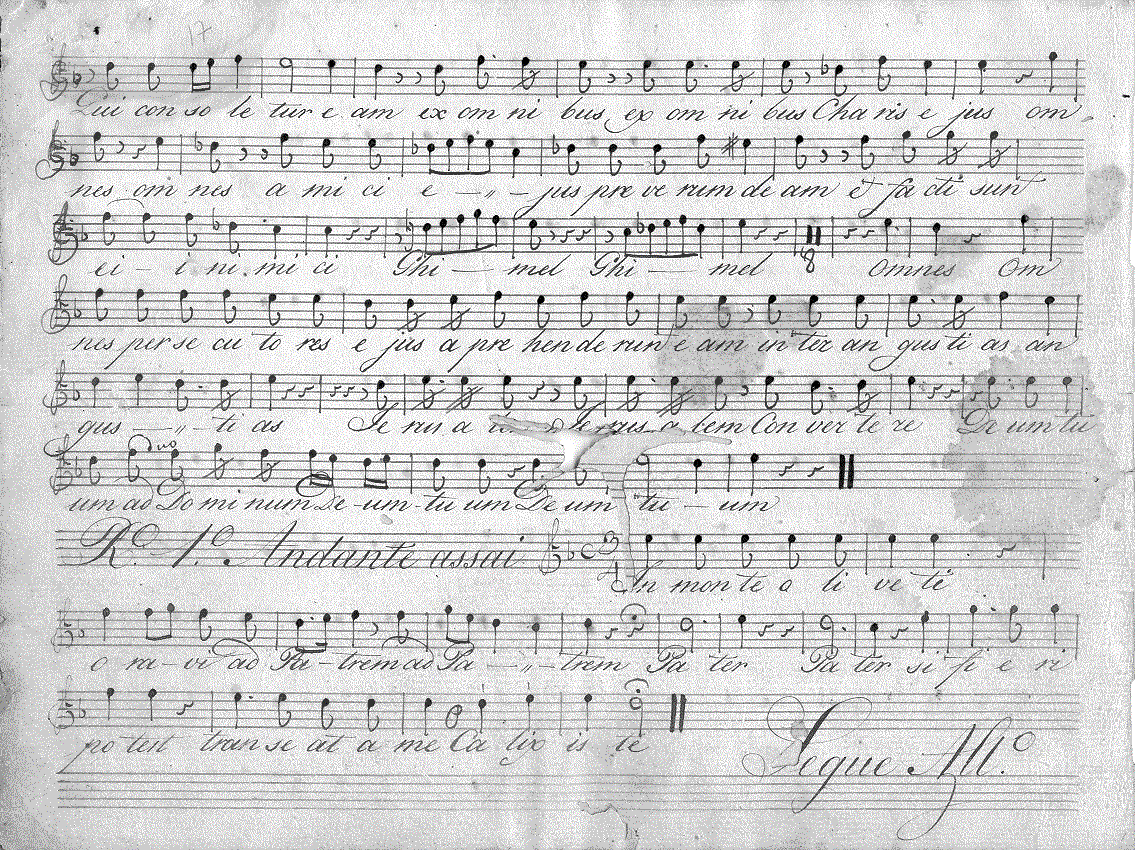 17
Qui con so le tur e am ex om ni bus ex om ni bus Cha ris e jus om
nes om nes a mi ci e - „ - jus pre ve rum de am et fa cti sunt
ei - i ni mi ci Ghi - mel Ghi - mel 8 Omnes Om
nes per se cu to res e jus a pre hen de run e am in ter an gus ti as an
gus - „ - ti as Je rus a Je rus a lem Con ver te re De um tu
Duo
um ad Do mi num De - um - tu um De um tu - um
R.º 1.º Andante assai C 3 4 In mon te o li ve ti
o ra - vi ad Pa - trem ad Pa - „ - trem Pa ter Pa ter si fi e ri
po test tran se at a me Ca lix is te
Segue All.º